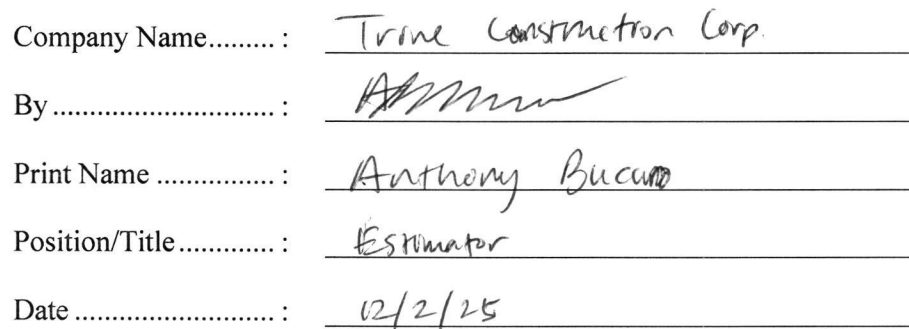 Company Name......... : Trine Construction Corp.
By ............................ :
Print Name ............... : Anthony Bucaro
Position/Title ............. : Estimator
Date .......................... : 12/2/25